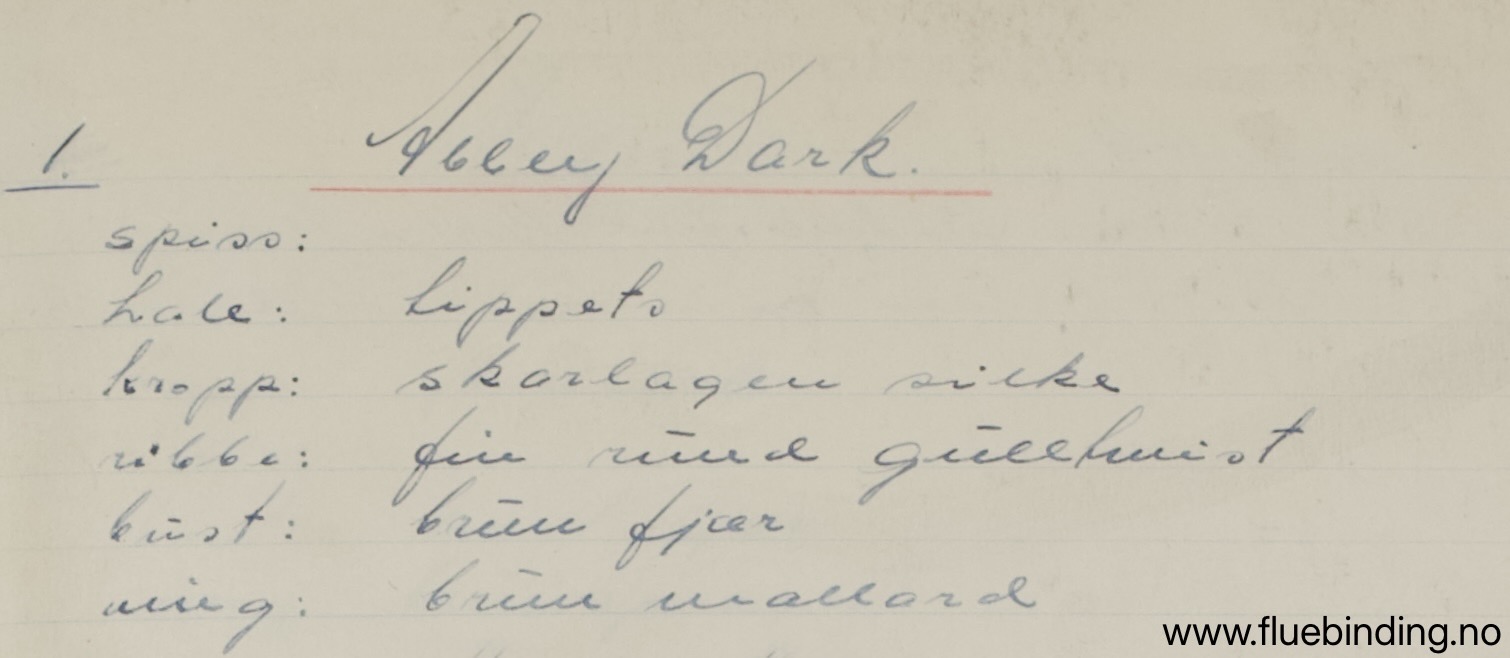 1. Abbey Dark.
spiss:
hale: tippets
kropp: skarlagen silke
ribbe: fin rund gulltvist
bust: brun fjær
ving: brun mallard
www.fluebinding.no